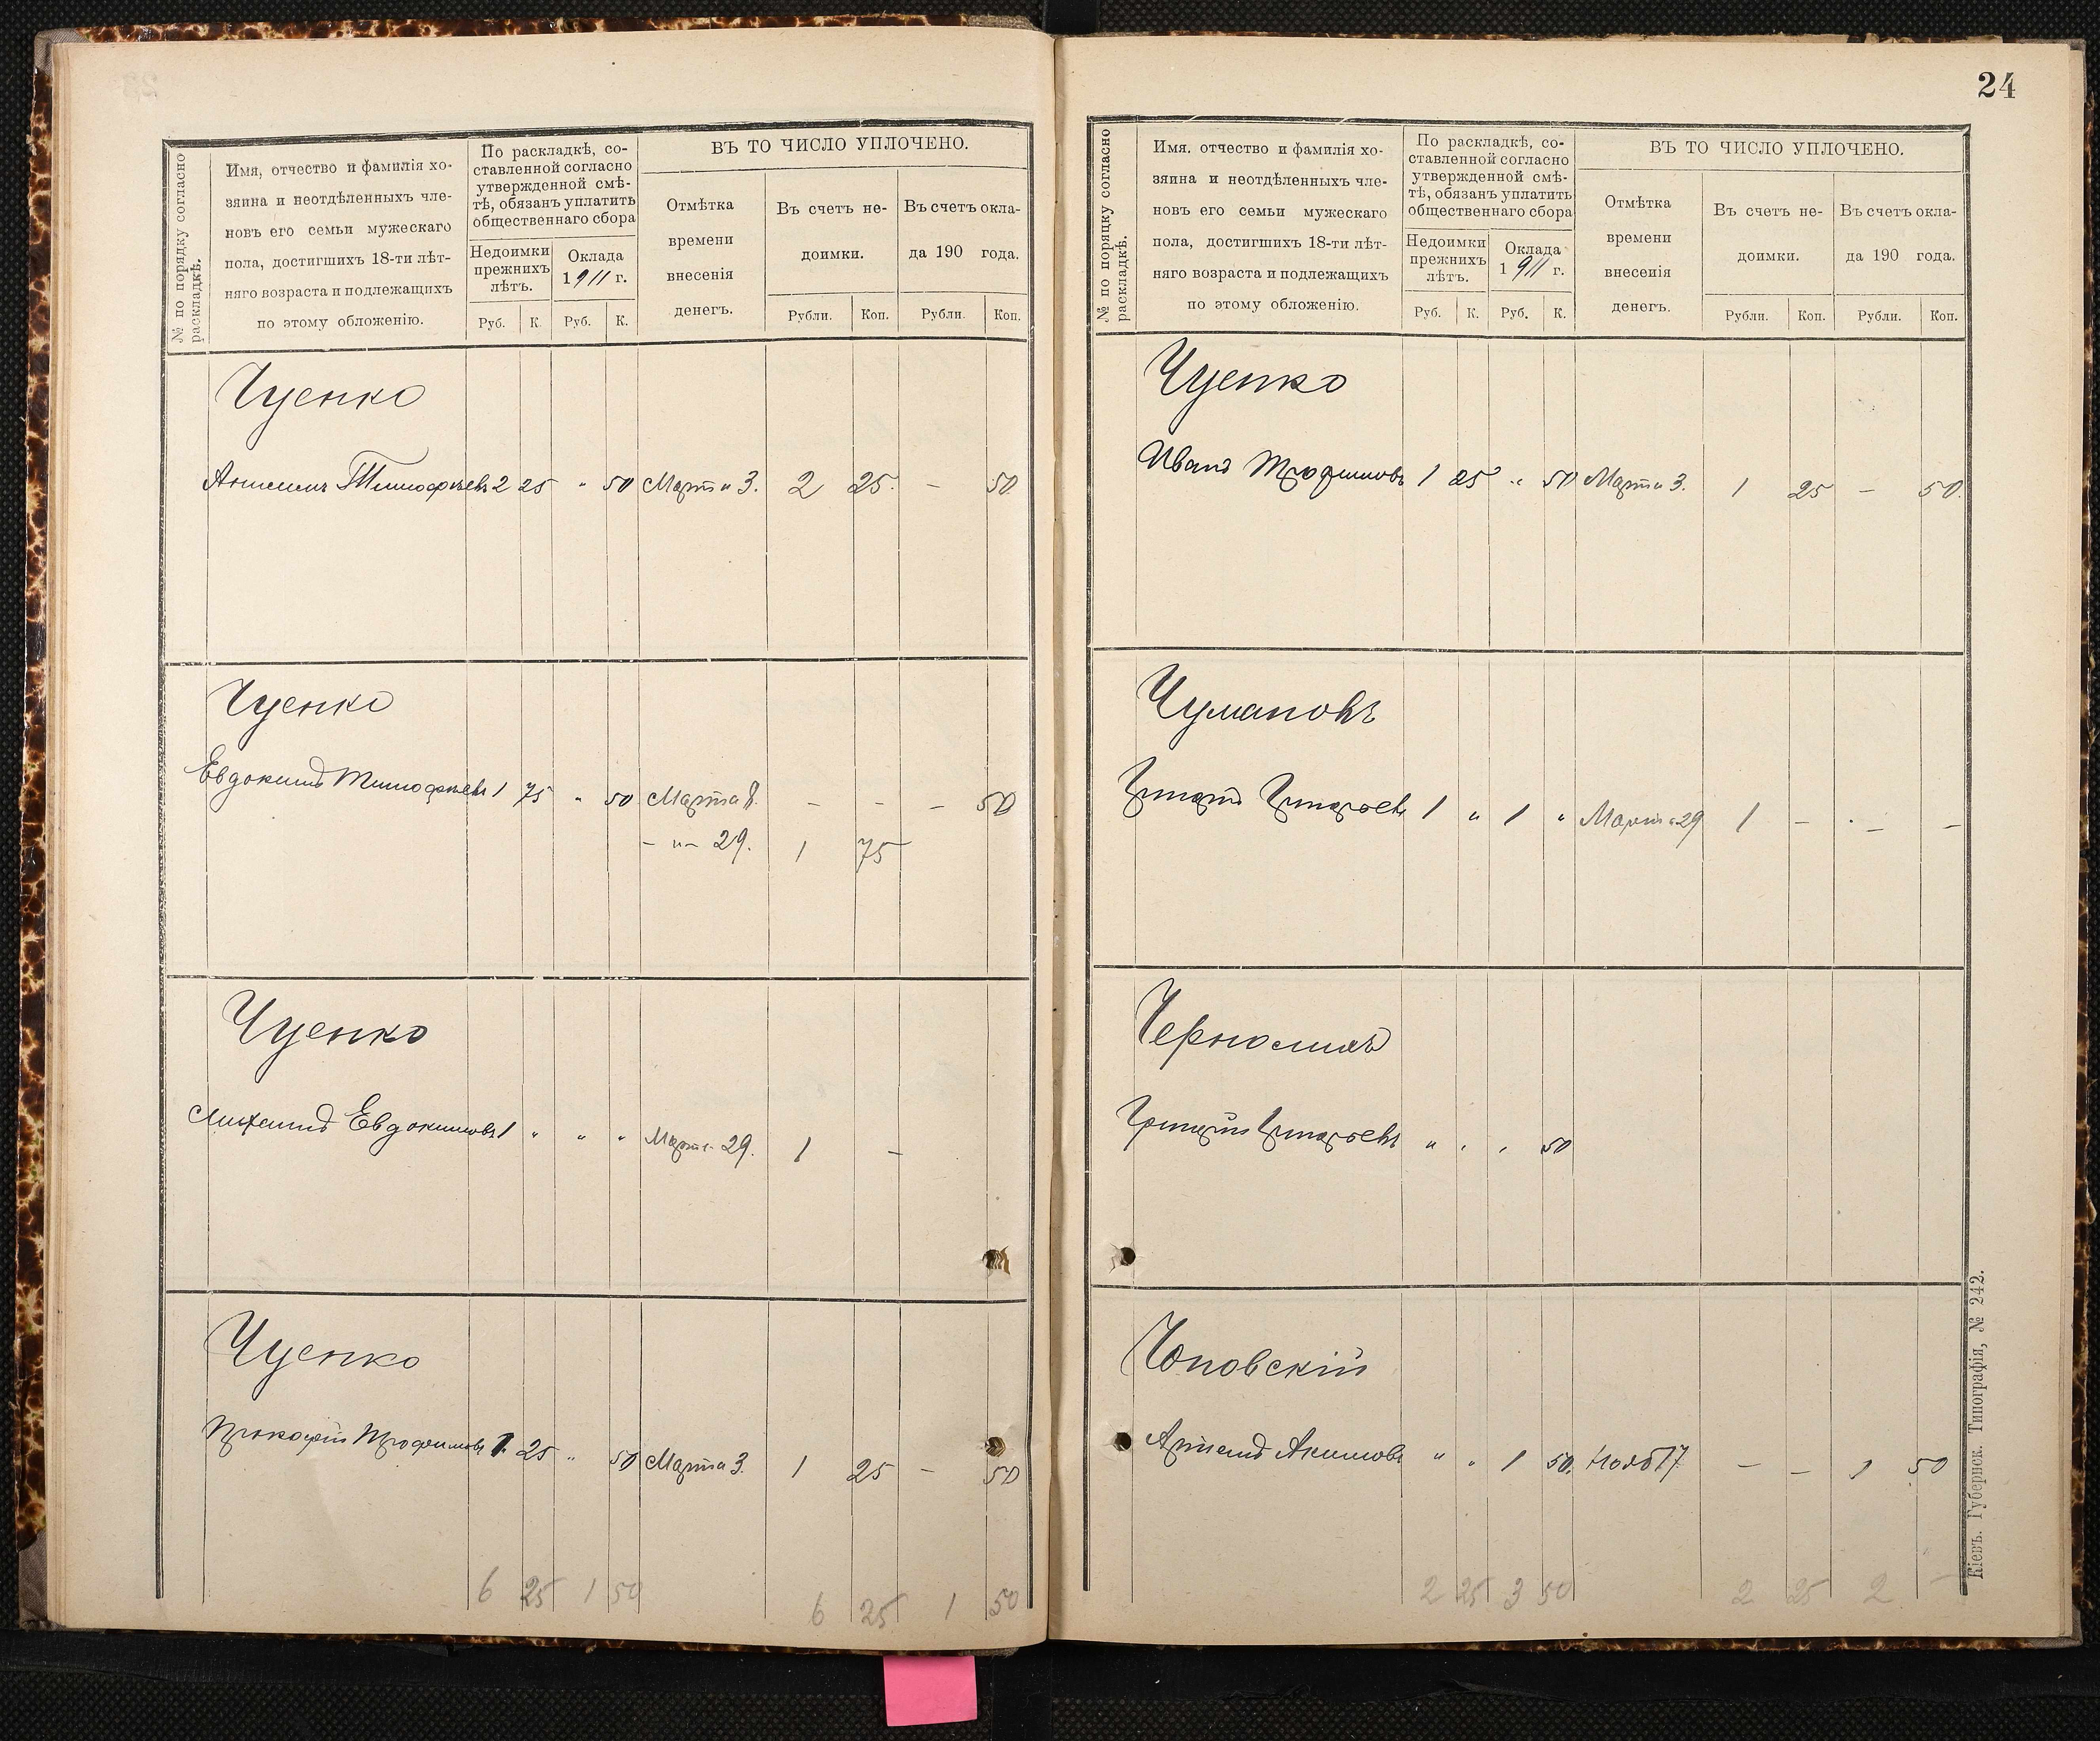 24
№ по порядку согласно раскладкѣ.
Имя, отчество и фамилія хо-
зяина и неотдѣленныхъ чле-
новъ его семьи мужескаго
пола, достигшихъ 18-ти лѣт-
няго возраста и подлежащихъ
по этому обложенію.
По раскладкѣ, со-
ставленной согласно
утвержденной смѣ-
тѣ, обязанъ уплатить
общественнаго сбора
Недоимки
прежнихъ
лѣтъ.
Оклада
1911 г.
Руб. К. Руб. К.
ВЪ ТО ЧИСЛО УПЛОЧЕНО.
Отмѣтка
времени
внесенія
денегъ.
Въ счетъ не-
доимки.
Въ счетъ окла-
да 190 года.
Рубли. Коп. Рубли. Коп.
Чуенко
Тимофѣевъ 2 25 " 50 Марта 3. 2 25. – 50.
Чуенко
Евдокимъ Тимофѣевъ 1 75 " 50 Марта 8. – – – 50
– " – 29. 1 75
Чуенко
Евдокимовъ 1 " " " Марта 29. 1 –
Чуенко
Прокофій Трофимовъ 1. 25 " 50 Марта 3. 1 25 – 50
6 25 1 50 6 25 1 50
№ по порядку согласно раскладкѣ.
Имя. отчество и фамилія хо-
зяина и неотдѣленныхъ чле-
новъ его семьи мужескаго
пола, достигшихъ 18-ти лѣт-
няго возраста и подлежащихъ
по этому обложенію.
По раскладкѣ, со-
ставленной согласно
утвержденной смѣ-
тѣ, обязанъ уплатить
общественнаго сбора
Недоимки
прежнихъ
лѣтъ.
Оклада
1911 г.
Руб. К. Руб. К.
ВЪ ТО ЧИСЛО УПЛОЧЕНО.
Отмѣтка
времени
внесенія
денегъ.
Въ счетъ не-
доимки.
Въ счетъ окла-
да 190 года.
Рубли. Коп. Рубли. Коп.
Чуенко
Иванъ Трофимовъ 1 25 " 50 Марта 3. 1 25 – 50.
Чумановъ
Григорій Григорьевъ 1 " 1 " Марта 29 1 – – –
Григорій Григорьевъ " " " 50
Чоповскій
Артемъ Акимовъ " " 1 50. Нояб 17 – – 1 50
2 25 3 50 2 25 2 –
Кіевъ. Губернск. Типографія, № 242.